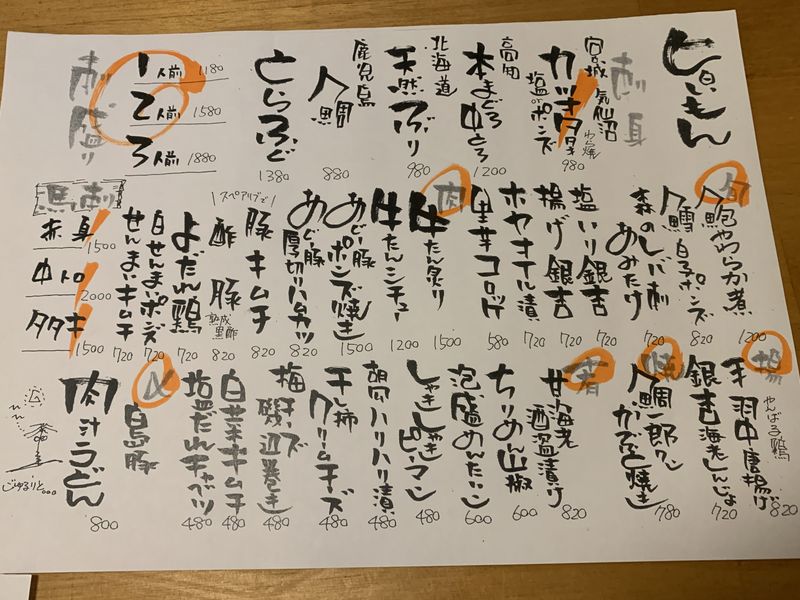 刺身
宮城 気仙沼
カツオタタキ
わら焼
塩orポンズ
980
高知
本まぐろ中とろ
1200
北海道
天然ぶり
980
鹿児島
八鯛
880
とらふぐ
1380
刺盛り
1人前 1180
2人前 1580
3人前 1880
旬
やわらか煮
1200
八鱈白子ポンズ
820
森のレバ刺
あみたけ
720
塩いり銀杏
720
揚げ銀杏
720
ホヤオイル漬
720
里芋コロッケ
580
肉
牛たん炙り
1500
牛たんシチュー
1200
あどー豚
ポンズ焼き
1500
あどー豚
厚切りハムカツ
820
豚キムチ
820
\スペアリブで/
酢豚
熟成黒酢
820
よだれ鶏
720
白せんまいポンズ
720
せんまいキムチ
720
馬刺
赤身
1500
中トロ
2000
タタキ
1500
揚
やんばる鶏
手羽中唐揚げ
820
銀杏海老しんじょ
720
焼
780
肴
甘海老
酒盗漬け
820
ちりめん山椒
600
泡盛めんたいこ
600
しゃきしゃき
ピーマン
480
胡瓜ハリハリ漬
480
干し柿
クリームチーズ
480
梅チーズ
磯辺巻き
480
白菜キムチ
480
塩だれキャベツ
480
〆
白鳥豚
肉汁うどん
800
じゅるりと。。。